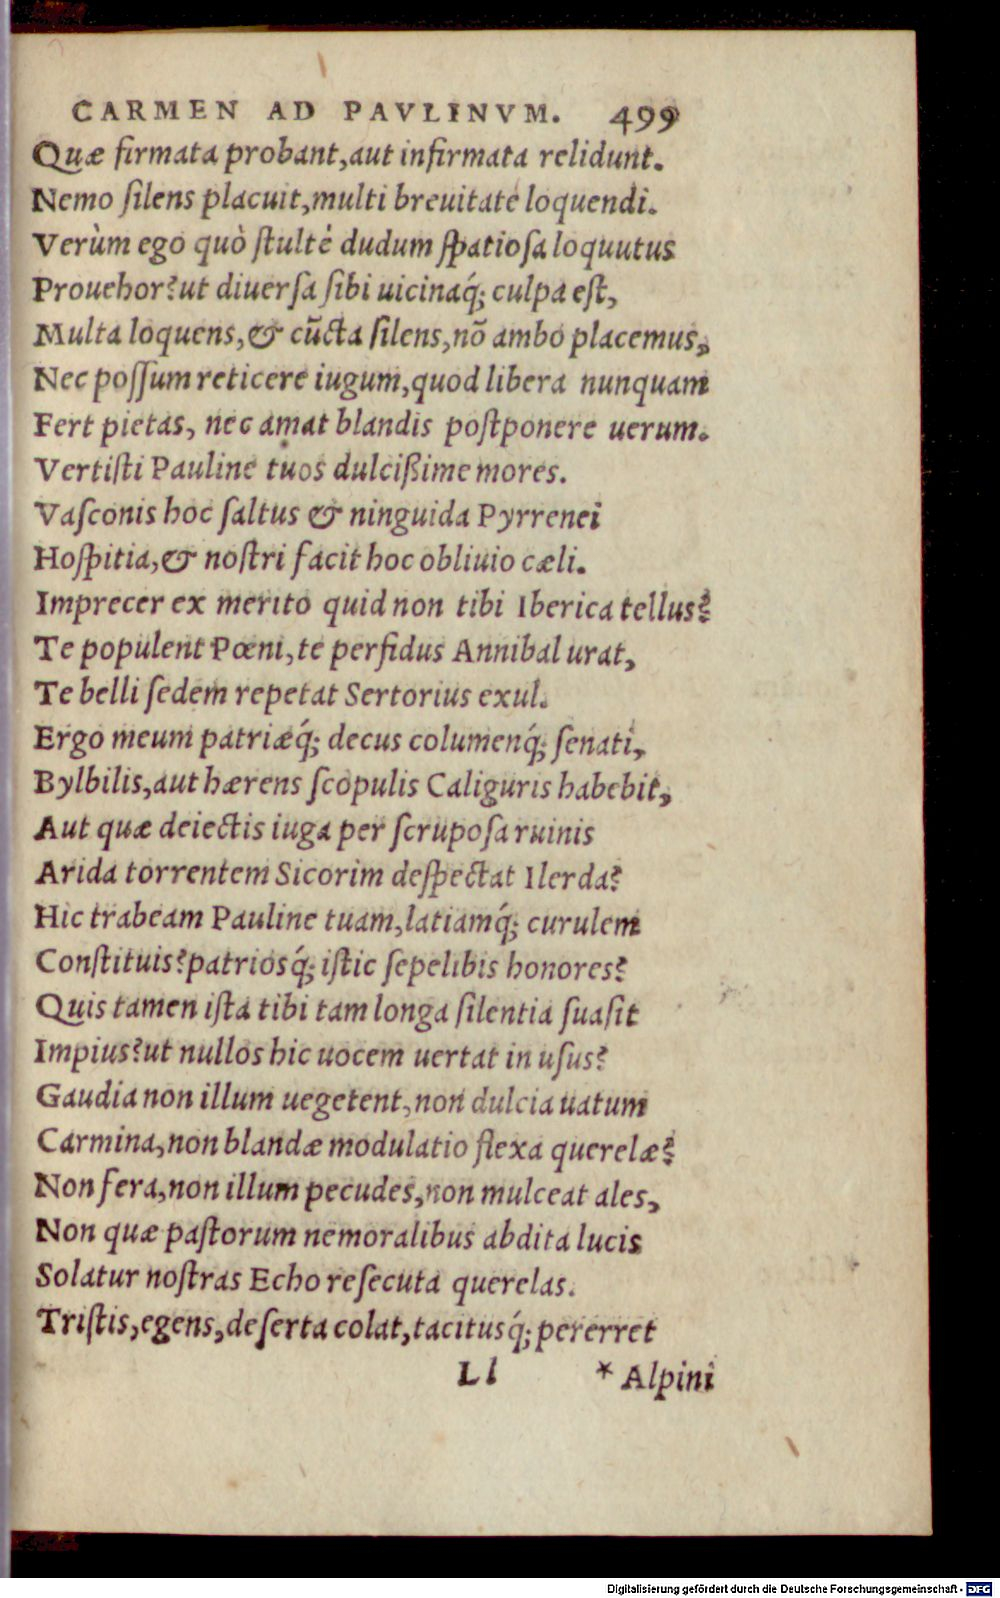 CARMEN AD PAVLINVM. 499
Quæ firmata probant,aut infirmata relidunt.
Nemo ſilens placuit,multi breuitate loquendi.
Verùm ego quò ſtultè dudum ſpatioſa loquutus
Prouehor?ut diuerſa ſibi uicinaq́; culpa eſt,
Multa loquens,& cũcta ſilens,nõ ambo placemus,
Nec poſſum reticere iugum,quod libera nunquam
Fert pietas, nec amat blandis poſtponere uerum.
Vertiſti Pauline tuos dulcißime mores.
Vaſconis hoc ſaltus & ninguida Pyrrenei
Hoſpitia,& noſtri facit hoc obliuio cæli.
Imprecer ex merito quid non tibi Iberica tellus?
Te populent Pœni,te perfidus Annibal urat,
Te belli ſedem repetat Sertorius exul.
Ergo meum patriæq́; decus columenq́; ſenati,
Bylbilis,aut hærens ſcopulis Caliguris habebit,
Aut quæ deiectis iuga per ſcrupoſa ruinis
Arida torrentem Sicorim deſpectat Ilerda?
Hic trabeam Pauline tuam,latiamq́; curulem
Conſtituis?patriosq́; iſtic ſepelibis honores?
Quis tamen iſta tibi tam longa ſilentia ſuaſit
Impius?ut nullos hic uocem uertat in uſus?
Gaudia non illum uegetent,non dulcia uatum
Carmina,non blandæ modulatio flexa querelæ?
Non fera,non illum pecudes,non mulceat ales,
Non quæ paſtorum nemoralibus abdita lucis
Solatur noſtras Echo reſecuta querelas.
Triſtis,egens,deſerta colat,tacitusq́; pererret
Ll * Alpini
Digitalisierung gefördert durch die Deutsche Forschungsgemeinschaft - DFG